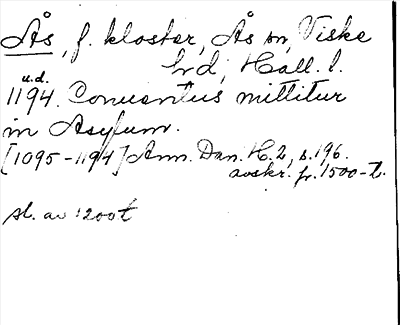 Ås, f. kloster, Ås sn, Viske
hd, Hall. l.
u.d.
1194. Conuentus mittitur
in Asylum.
[1095-1194] Ann. Dan. H. 2, s. 196.
avskr. fr. 1500-t.
sl. av 1200t